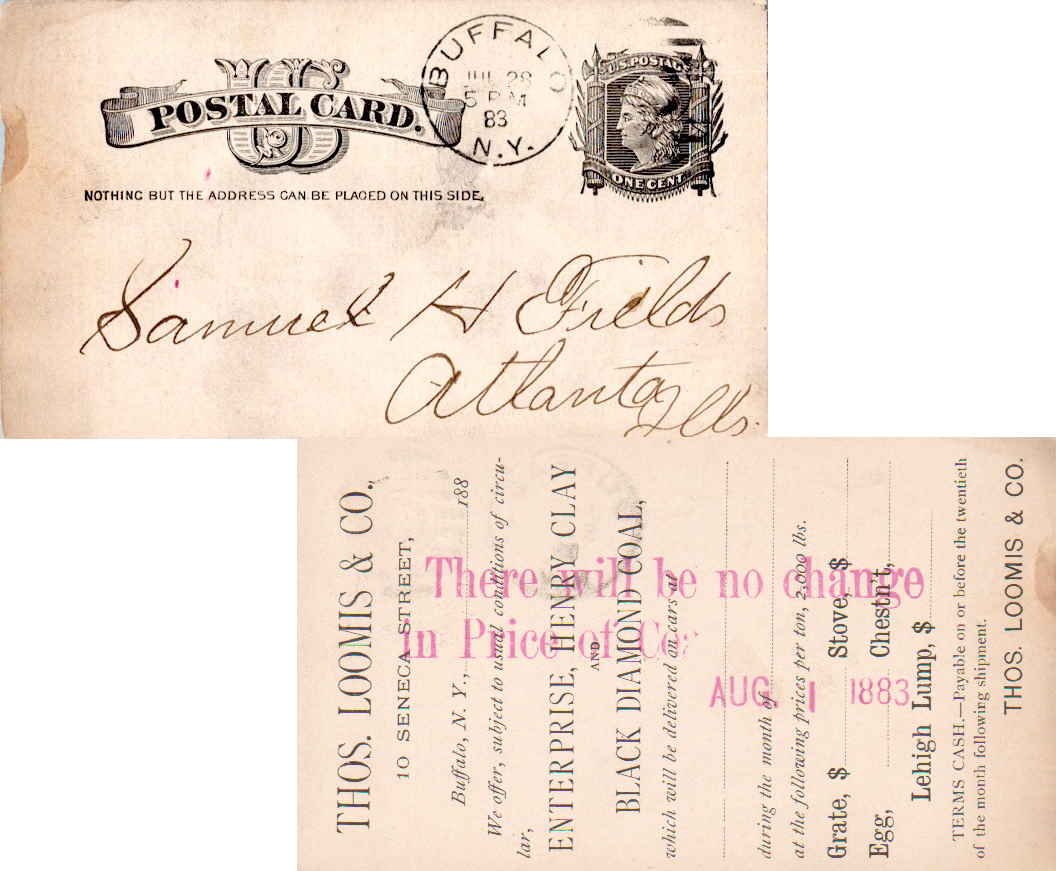 US
POSTAL CARD.
NOTHING BUT THE ADDRESS CAN BE PLACED ON THIS SIDE.
BUFFALO
JUL 28
5 PM
83
N.Y.
U.S. POSTAGE
ONE CENT
Samuel H Fields
Atlanta
Ills.
THOS. LOOMIS & CO.,
10 SENECA STREET,
Buffalo, N. Y., 188
We offer, subject to usual conditions of circu-
lar,
ENTERPRISE, HENRY CLAY
AND
BLACK DIAMOND COAL,
which will be delivered on cars at
during the month of
at the following prices per ton, 2,000 lbs.
Grate, $ Stove, $
Egg, Chestn't,
Lehigh Lump, $
TERMS CASH.—Payable on or before the twentieth
of the month following shipment.
THOS. LOOMIS & CO.
There will be no change
in Price of Coa
AUG. 1 1883